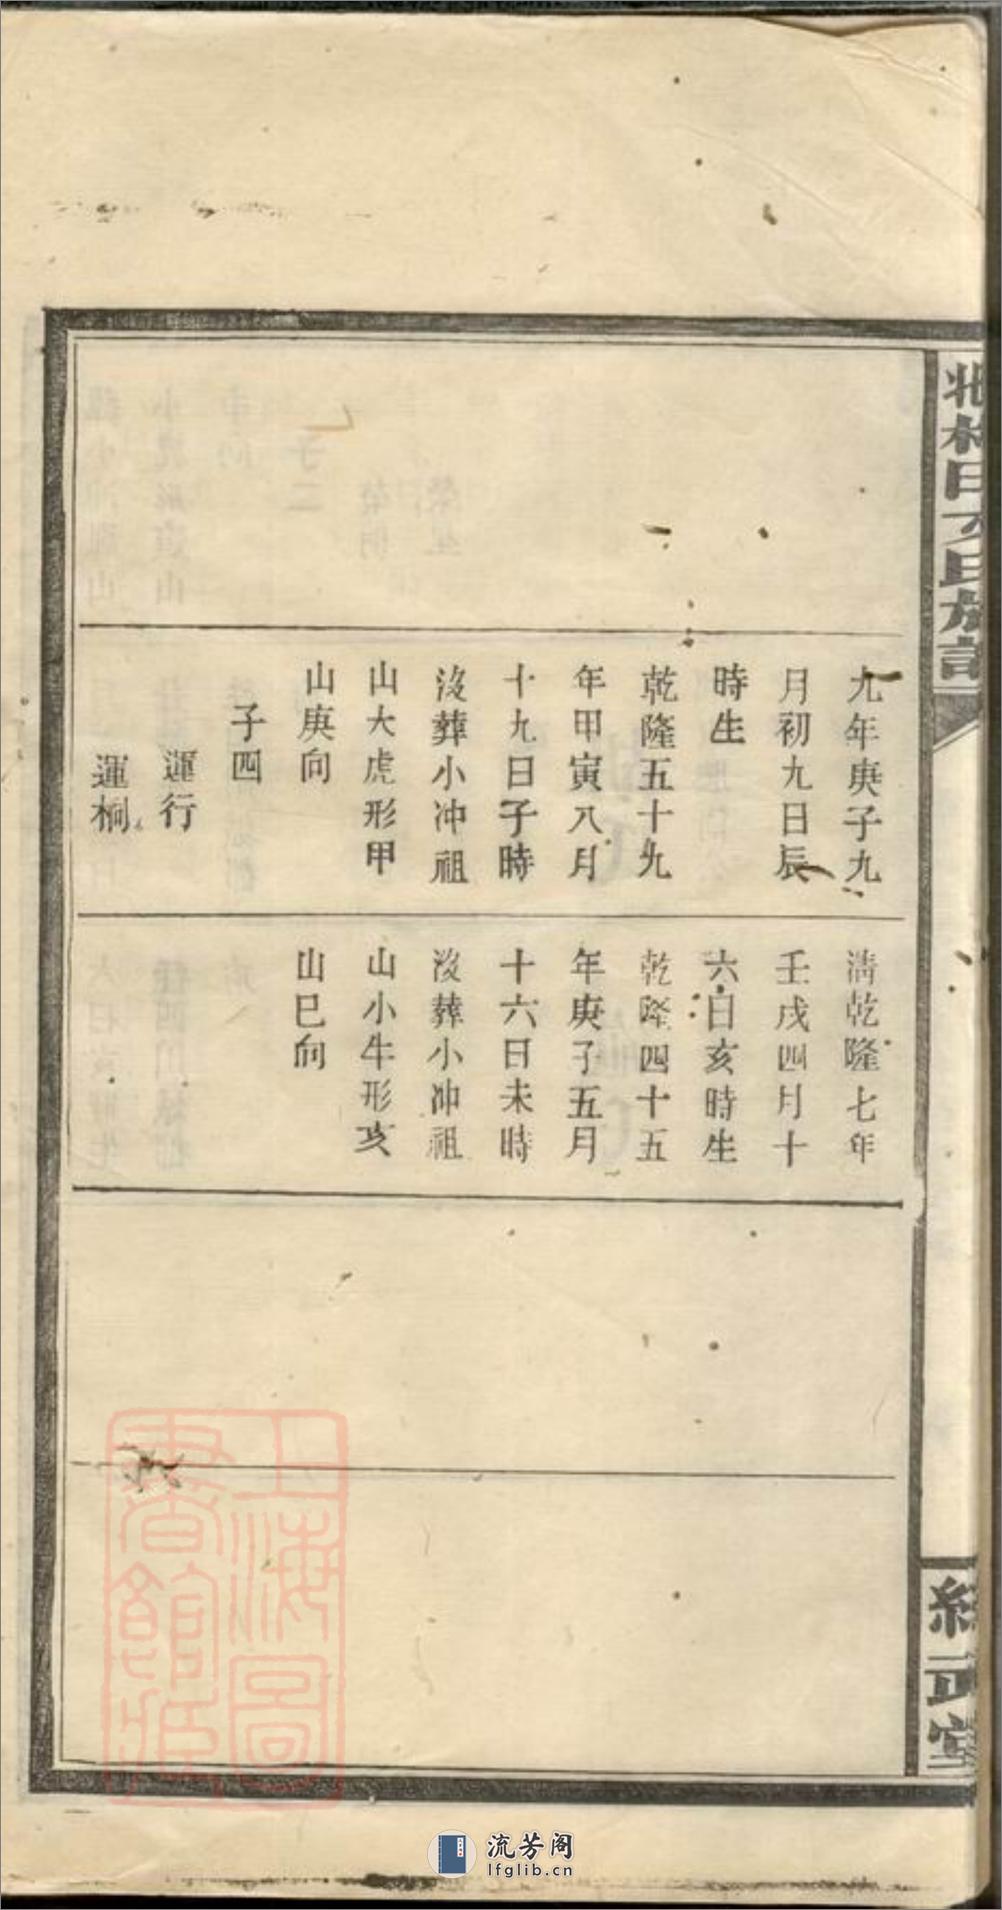 九年庚子九
月初九日辰
時生
乾隆五十九
年甲寅八月
十九日子時
沒葬小冲祖
山大虎形甲
山庚向
子四
運行
運桐
清乾隆七年
壬戌四月十
六日亥時生
乾隆四十五
年庚子五月
十六日未時
沒葬小冲祖
山小牛形亥
山巳向
上海圖
書館藏
流芳阁
lfglib.cn